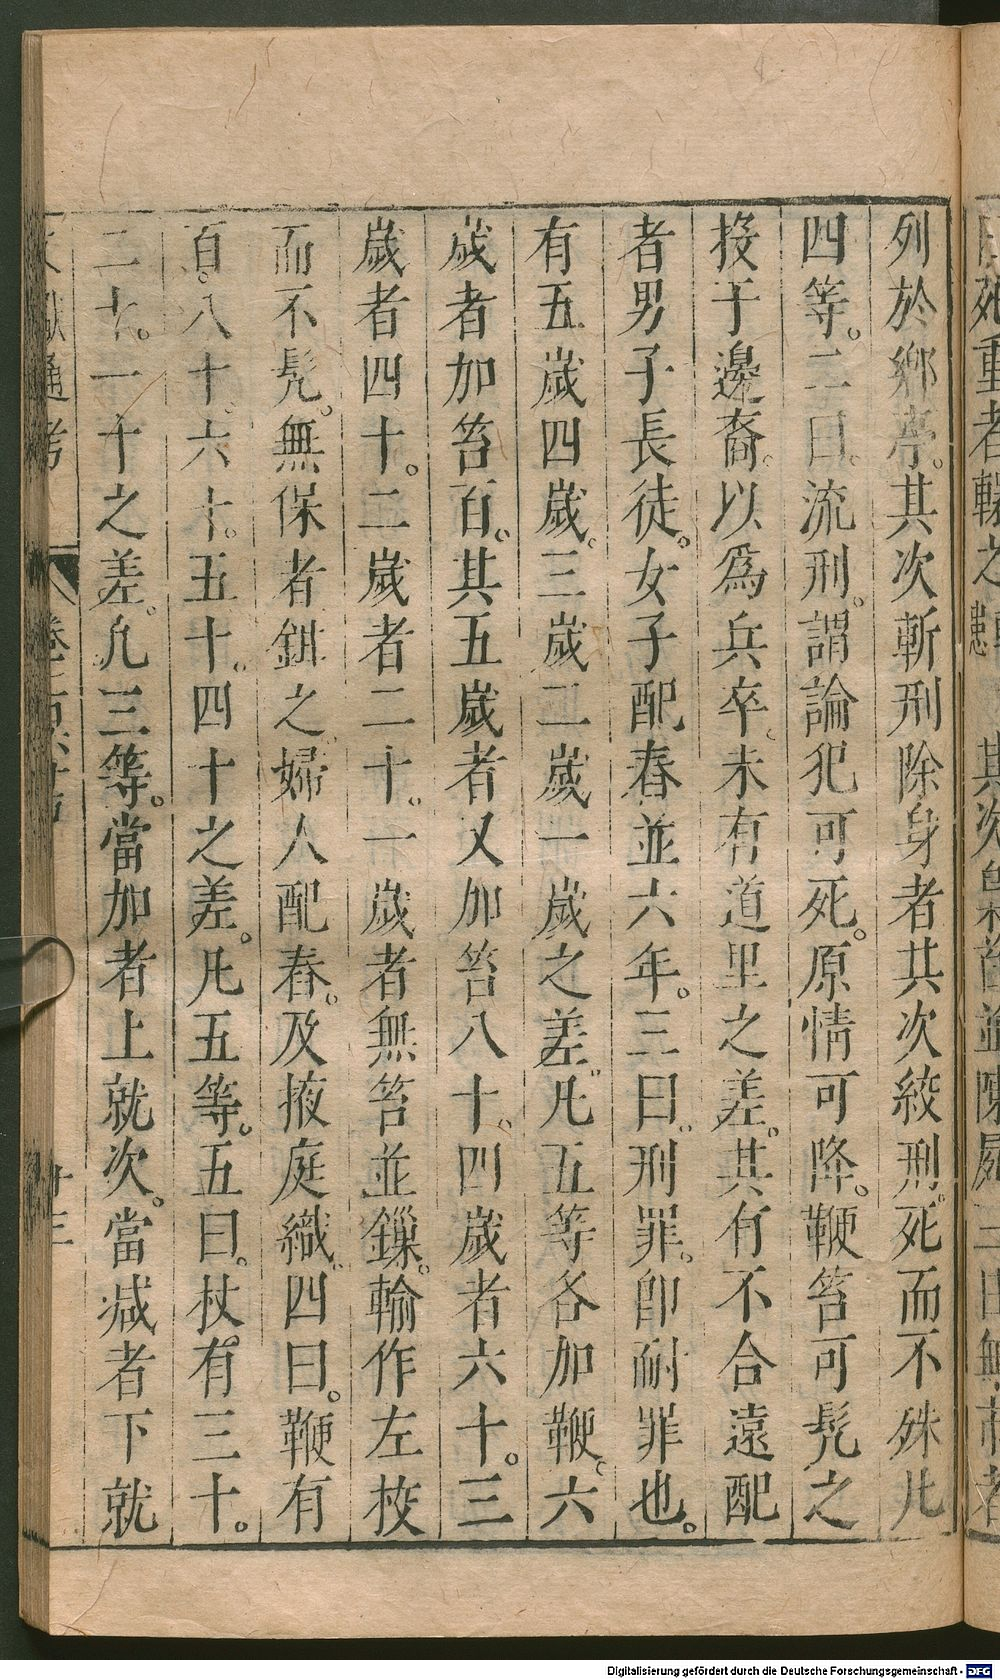 列於鄉亭。其次斬刑除身者共次絞刑死而不殊凡
四等。二曰。流刑。謂論犯可死。原情可降。鞭笞可髡之
投于邊裔。以爲兵卒。未有道里之差。其有不合遠配
者男子長徒。女子配舂並六年。三曰。刑罪。卽耐罪也。
有五歲四歲。三歲二歲一歲之差。凡五等各加鞭。六
歲者加笞百。其五歲者又加笞八十。四歲者六十。三
歲者四十。二歲者二十。一歲者無笞並鏁。輸作左校
而不髡。無保者鉗之。婦人配舂。及掖庭織。四曰。鞭有
百。八十。六十。五十。四十之差。凡五等。五曰。杖。有三十。
二十。一十之差。凡三等。當加者上就次。當減者下就
文獻通考
廿三
死重者轘之 其次梟首並陳屍三日無市者
Digitalisierung gefördert durch die Deutsche Forschungsgemeinschaft - DFG